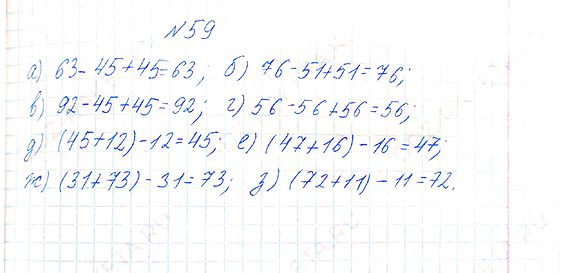 №59
а) 63-45+45=63; б) 76-51+51=76;
в) 92-45+45=92; г) 56-56+56=56;
д) (45+12)-12=45; е) (47+16)-16=47;
ж) (31+73)-31=73; з) (72+11)-11=72.